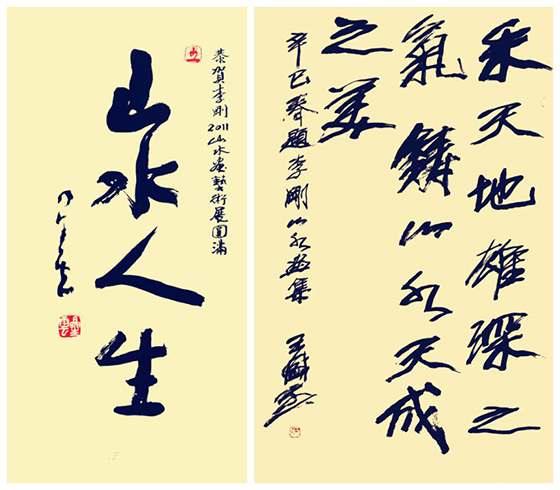 恭賀李剛2011山水畫藝術展圓滿
山水人生
采天地雄深之
氣鑄山水天成
之美
辛巳春題李剛山水畫集